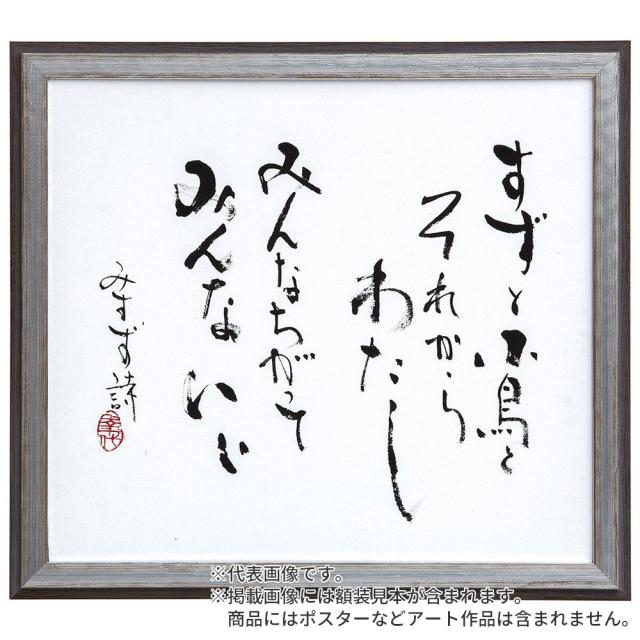 すずと小鳥と
それから
わたし
みんなちがって
みんないい
みすず詩
※代表画像です。
※掲載画像には額装見本が含まれます。
商品にはポスターなどアート作品は含まれません。